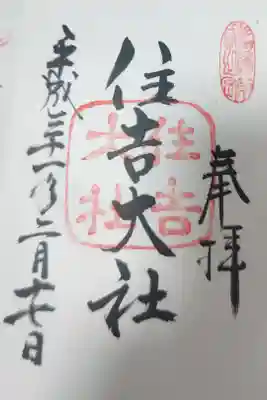 奉拝
住吉大社
平成二十一年二月十七日
住吉大社